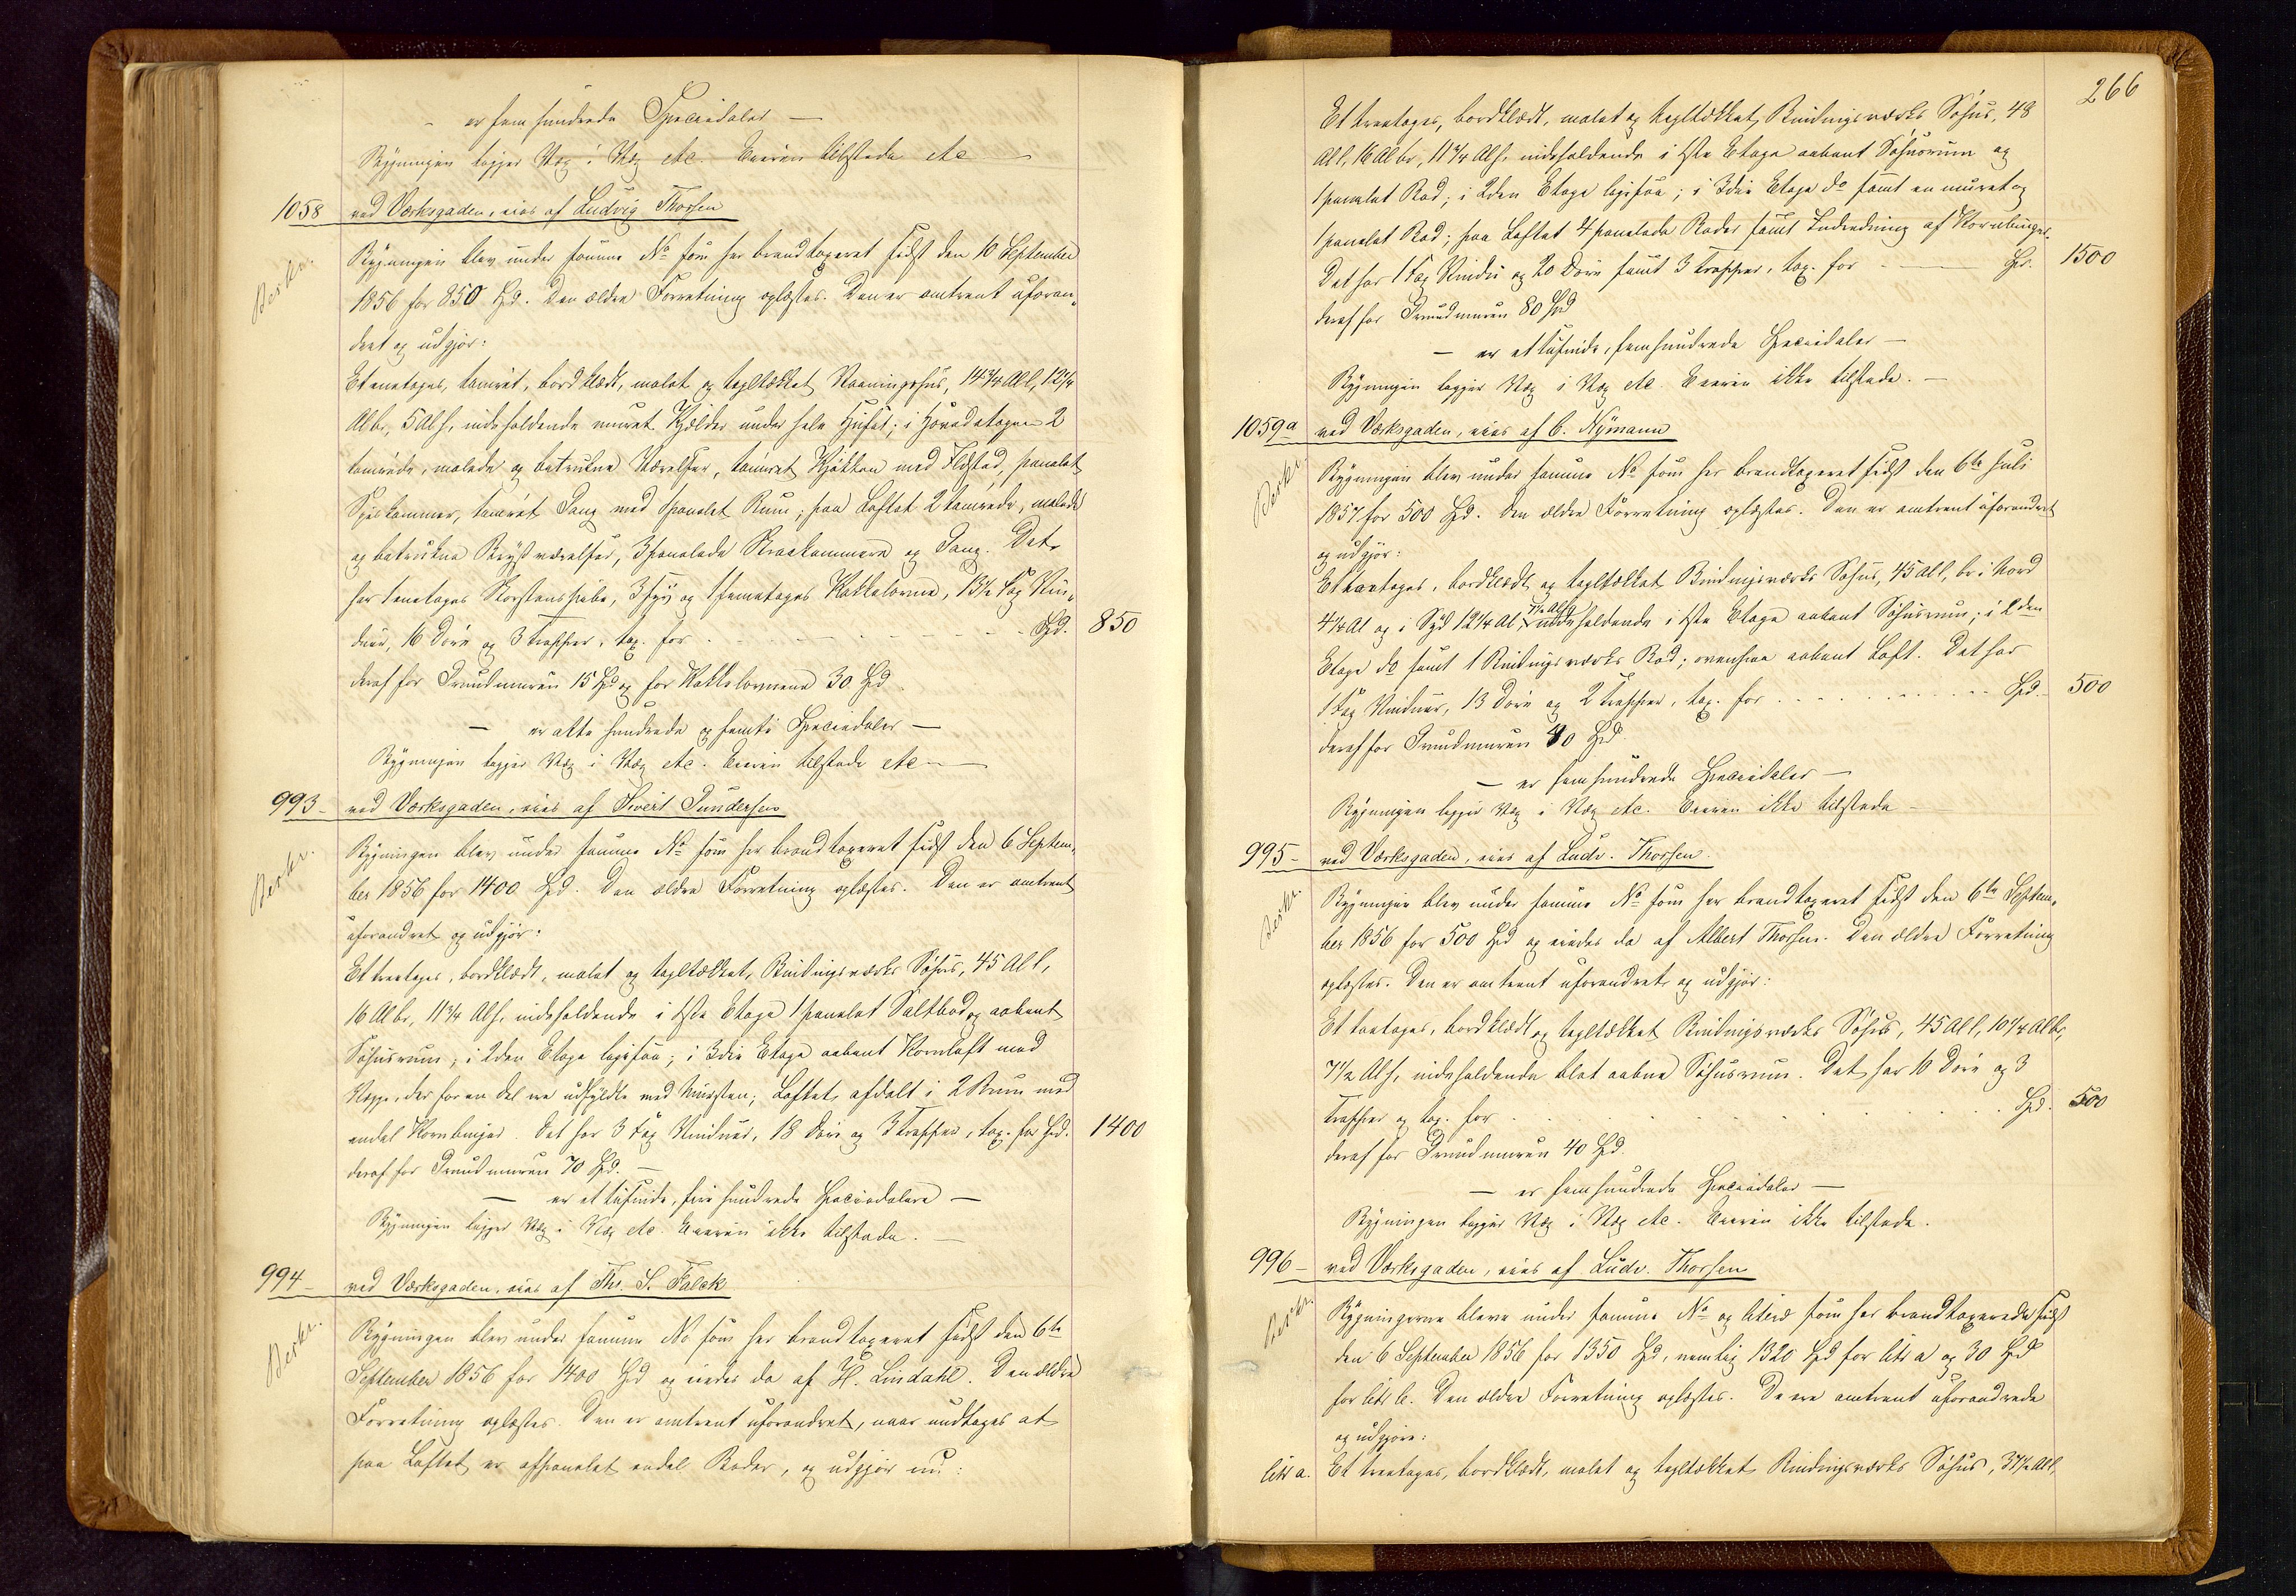 - er fem hundrede Speciedaler -
Bygningen ligger Væg i Væg etc. Eieren tilstede etc -
1058 ved Værksgaden, eies af Ludvig Thorsen
Beskr.
Bygningen blev under samme No som her brandtaxeret sidst den 10 September
1856 for 850 Spd. Den ældre Forretning oplæstes. Den er omtrent uforan-
dret og udgjør:
Et enetages, tømret, bordklædt, malet og tegltækket Vaaningshus, 14 3/4 Al l, 12 1/4
Al br, 5 Al h, indeholdende muret Kjælder under hele Huset; i Hovedetagen 2
tømrede, malede og betrukne Værelser, tømret Kjøkken med Ildsted, panelet
Spiskammer, tømret Gang med panelet Rum; paa Loftet 2 tømrede, malede
og betrukne Qvistværelser, 3 panelede Skraakammere og Gang. Det
har 1 enetages Skorstenspibe, 3 jyv og 1 femetages Kakkelovne, 13 1/2 Fag Vin-
duer, 16 Døre og 3 Trapper, tax. for - - - Spd. 850
deraf for Grundmuren 15 Spd og for Kakkelovnene 30 Spd
- er otte hundrede og femti Speciedaler -
Bygningen ligger Væg i Væg etc. Eieren tilstede etc -
993 - ved Værksgaden, eies af Sivert Gundersen
Beskr.
Bygningen blev under samme No som her brandtaxeret sidst den 6 Septem-
ber 1856 for 1400 Spd. Den ældre Forretning oplæstes. Den er omtrent
uforandret og udgjør:
Et treetages, bordklædt, malet og tegltækket Bindingsværks Søhus, 45 Al l,
16 Al br, 11 3/4 Al h, indeholdende i 1ste Etage 1 panelet Saltbod og aabent
Søhusrum; i 2den Etage ligesaa; i 3die Etage aabent Kornloft med
Vægge, der for en Del ere udfyldte med Mursten; Loftet afdelt i 2 Rum med
endel Kornbinger. Det har 3 Fag Vinduer, 18 Døre og 3 Trapper, tax. for Spd. 1400
deraf for Grundmuren 70 Spd. -
- er et tusinde, fire hundrede Speciedalere -
Bygningen ligger Væg i Væg etc. Eieren ikke tilstede. -
994 - ved Værksgaden, eies af Ths. S. Falck
Beskr.
Bygningen blev under samme No som her brandtaxeret sidst den 6te
September 1856 for 1400 Spd og eiedes da af H. Lindahl. Den ældre
Forretning oplæstes. Den er omtrent uforandret, naar undtages at
paa Loftet er afpanelet endel Boder, og udgjør nu:
266
Et treetages, bordklædt, malet og tegltækket Bindingsværks Søhus, 48
Al l, 16 Al br, 11 3/4 Al h, indeholdende i 1ste Etage aabent Søhusrum og
1 panelet Bod; i 2den Etage ligesaa; i 3die Etage do samt en muret og
1 panelet Bod; paa Loftet 4 panelede Boder samt Indredning af Kornbinger.
Det har 1 Fag Vindu og 20 Døre samt 3 Trapper, tax. for - - Spd. 1500
deraf for Grundmuren 80 Spd
- er et tusinde, femhundrede Speciedaler -
Bygningen ligger Væg i Væg etc. Eieren ikke tilstede. -
1059a ved Værksgaden, eies af C. Nÿmann
Beskr.
Bygningen blev under samme No som her brandtaxeret sidst den 6te Juli
1857 for 500 Spd. Den ældre Forretning oplæstes. Den er omtrent uforandret
og udgjør:
Et toetages, bordklædt og tegltækket Bindingsværks Søhus, 45 Al l, br i Nord
4 1/4 Al og i Syd 12 1/4 Al, 7 1/2 Al h, indeholdende i 1ste Etage aabent Søhusrum; i 2den
Etage do samt 1 Bindingsværks Bod; ovenpaa aabent Loft. Det har
1 Fag Vinduer, 13 Døre og 2 Trapper, tax. for - - - Spd. 500
deraf for Grundmuren 40 Spd.
- er fem hundrede Speciedaler -
Bygningen ligger Væg i Væg etc. Eieren ikke tilstede -
995 - ved Værksgaden, eies af Ludv. Thorsen.
Beskr.
Bygningen blev under samme No som her brandtaxeret sidst den 6te Septem-
ber 1856 for 500 Spd og eiedes da af Albert Thorsen. Den ældre Forretning
oplæstes. Den er omtrent uforandret og udgjør:
Et toetages, bordklædt og tegltækket Bindingsværks Søhus, 45 Al l, 10 1/4 Al br,
7 1/2 Al h, indeholdende blot aabne Søhusrum. Det har 16 Døre og 3
Trapper og tax. for . . . Spd. 500
deraf for Grundmuren 40 Spd.
- er fem hundrede Speciedaler -
Bygningen ligger Væg i Væg etc. Eieren ikke tilstede.
996 - ved Værksgaden, eies af Ludv. Thorsen
Beskr.
Bygningerne bleve under samme No og Litra som her brandtaxerede sidst
den 6 September 1856 for 1350 Spd, nemlig 1320 Spd for litr a og 30 Spd
for litr b. Den ældre Forretning oplæstes. De ere omtrent uforandrede
og udgjøre:
litr a. Et treetages, bordklædt, malet og tegltækket Bindingsværks Søhus, 37 1/2 Al l,